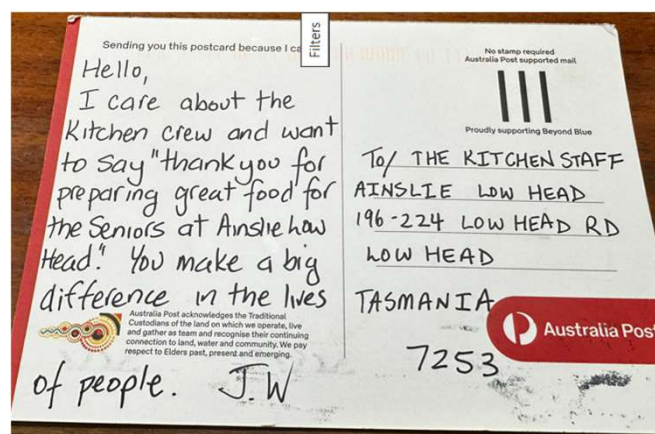 Sending you this postcard because I ca
Filters
Hello,
I care about the
Kitchen crew and want
to say "thankyou for
preparing great food for
the Seniors at Ainslie Low
Head." You make a big
difference in the lives
Australia Post acknowledges the Traditional
Custodians of the land on which we operate, live
and gather as team and recognise their continuing
connection to land, water and community. We pay
respect to Elders past, present and emerging.
of people. J.W
No stamp required
Australia Post supported mail
Proudly supporting Beyond Blue
To/ THE KITCHEN STAFF
AINSLIE LOW HEAD
196-224 LOW HEAD RD
LOW HEAD
TASMANIA
Australia Pos
7253